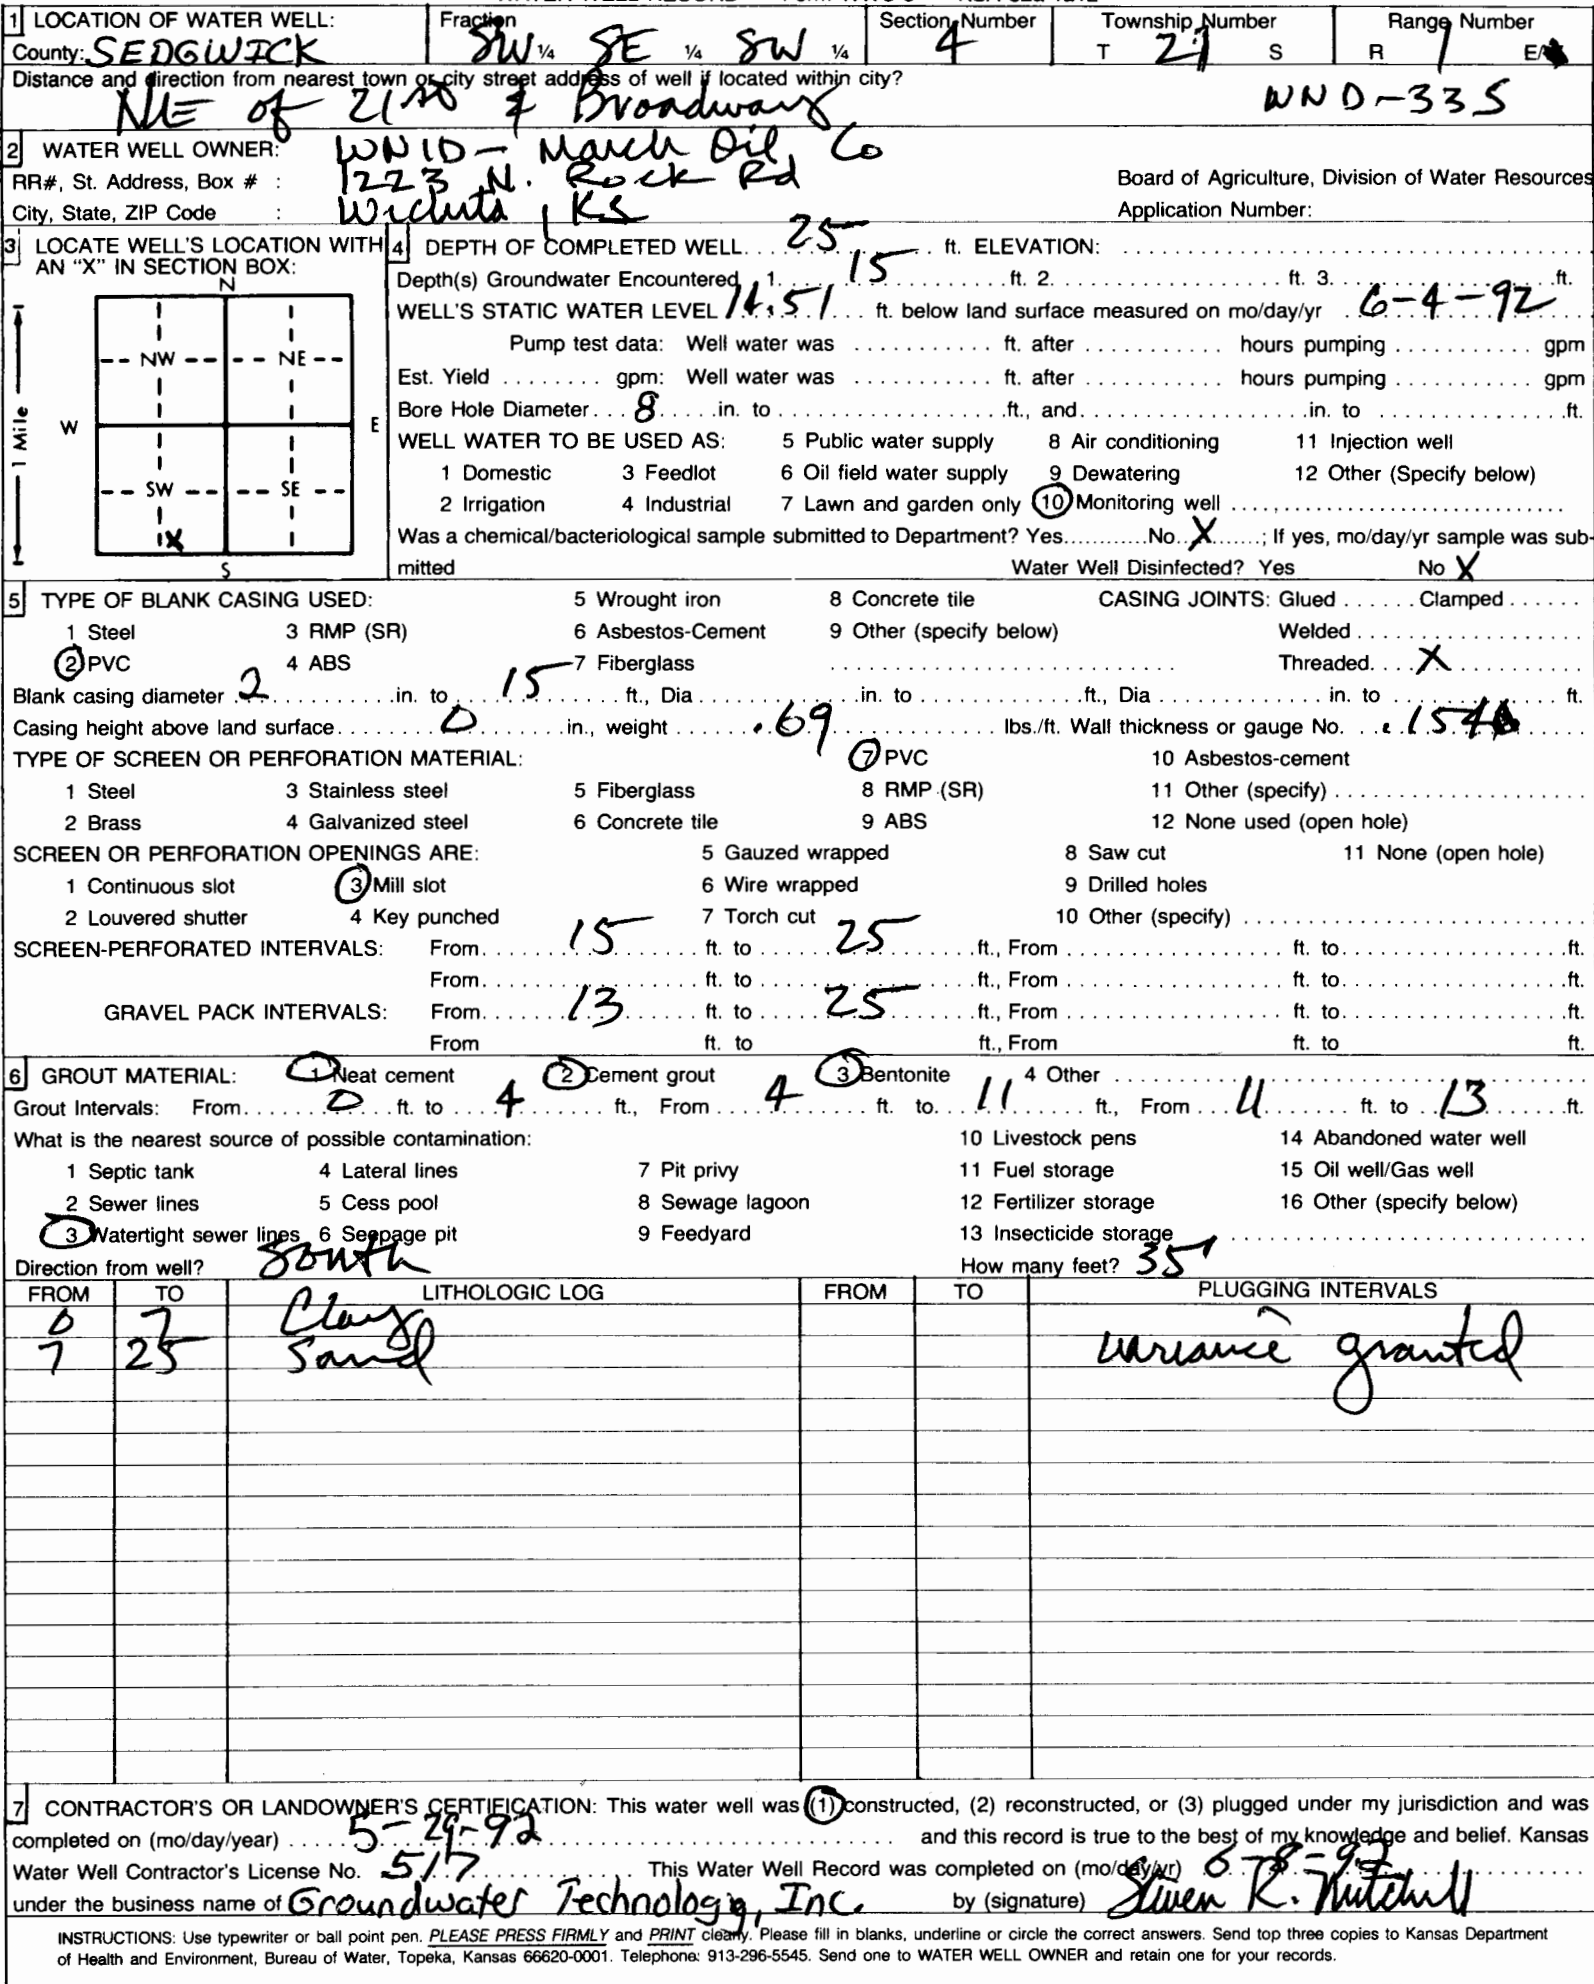 1 LOCATION OF WATER WELL: Fraction Section Number Township Number Range Number
County: SEDGWICK SW ¼ SE ¼ SW ¼ 4 T 27 S R 1 E/
Distance and direction from nearest town or city street address of well if located within city?
NE of 21st & Broadway WND-335
2 WATER WELL OWNER: WNID - March Oil Co
RR#, St. Address, Box # : 1223 N. Rock Rd Board of Agriculture, Division of Water Resources
City, State, ZIP Code : Wichita, KS Application Number:
3 LOCATE WELL'S LOCATION WITH AN "X" IN SECTION BOX:
N
NW NE
W E
SW SE
X
S
1 Mile
4 DEPTH OF COMPLETED WELL. . . 25 . . . ft. ELEVATION:
Depth(s) Groundwater Encountered 1. 15 ft. 2. ft. 3. ft.
WELL'S STATIC WATER LEVEL 11.51 ft. below land surface measured on mo/day/yr 6-4-92
Pump test data: Well water was ft. after hours pumping gpm
Est. Yield gpm: Well water was ft. after hours pumping gpm
Bore Hole Diameter 8 in. to ft., and in. to ft.
WELL WATER TO BE USED AS: 5 Public water supply 8 Air conditioning 11 Injection well
1 Domestic 3 Feedlot 6 Oil field water supply 9 Dewatering 12 Other (Specify below)
2 Irrigation 4 Industrial 7 Lawn and garden only 10 Monitoring well
Was a chemical/bacteriological sample submitted to Department? Yes No X ; If yes, mo/day/yr sample was sub-
mitted Water Well Disinfected? Yes No X
5 TYPE OF BLANK CASING USED: 5 Wrought iron 8 Concrete tile CASING JOINTS: Glued Clamped
1 Steel 3 RMP (SR) 6 Asbestos-Cement 9 Other (specify below) Welded
2 PVC 4 ABS 7 Fiberglass Threaded X
Blank casing diameter 2 in. to 15 ft., Dia in. to ft., Dia in. to ft.
Casing height above land surface 0 in., weight .69 lbs./ft. Wall thickness or gauge No. .154
TYPE OF SCREEN OR PERFORATION MATERIAL: 7 PVC 10 Asbestos-cement
1 Steel 3 Stainless steel 5 Fiberglass 8 RMP (SR) 11 Other (specify)
2 Brass 4 Galvanized steel 6 Concrete tile 9 ABS 12 None used (open hole)
SCREEN OR PERFORATION OPENINGS ARE: 5 Gauzed wrapped 8 Saw cut 11 None (open hole)
1 Continuous slot 3 Mill slot 6 Wire wrapped 9 Drilled holes
2 Louvered shutter 4 Key punched 7 Torch cut 10 Other (specify)
SCREEN-PERFORATED INTERVALS: From 15 ft. to 25 ft., From ft. to ft.
From ft. to ft., From ft. to ft.
GRAVEL PACK INTERVALS: From 13 ft. to 25 ft., From ft. to ft.
From ft. to ft., From ft. to ft.
6 GROUT MATERIAL: 1 Neat cement 2 Cement grout 3 Bentonite 4 Other
Grout Intervals: From 0 ft. to 4 ft., From 4 ft. to 11 ft., From 11 ft. to 13 ft.
What is the nearest source of possible contamination: 10 Livestock pens 14 Abandoned water well
1 Septic tank 4 Lateral lines 7 Pit privy 11 Fuel storage 15 Oil well/Gas well
2 Sewer lines 5 Cess pool 8 Sewage lagoon 12 Fertilizer storage 16 Other (specify below)
3 Watertight sewer lines 6 Seepage pit 9 Feedyard 13 Insecticide storage
Direction from well? South How many feet? 35'
FROM TO LITHOLOGIC LOG FROM TO PLUGGING INTERVALS
0 7 Clay
7 25 Sand variance granted
7 CONTRACTOR'S OR LANDOWNER'S CERTIFICATION: This water well was (1) constructed, (2) reconstructed, or (3) plugged under my jurisdiction and was
completed on (mo/day/year) 5-29-92 and this record is true to the best of my knowledge and belief. Kansas
Water Well Contractor's License No. 517 This Water Well Record was completed on (mo/day/yr) 6-8-92
under the business name of Groundwater Technology, Inc. by (signature) Steven R.
INSTRUCTIONS: Use typewriter or ball point pen. PLEASE PRESS FIRMLY and PRINT clearly. Please fill in blanks, underline or circle the correct answers. Send top three copies to Kansas Department
of Health and Environment, Bureau of Water, Topeka, Kansas 66620-0001. Telephone: 913-296-5545. Send one to WATER WELL OWNER and retain one for your records.